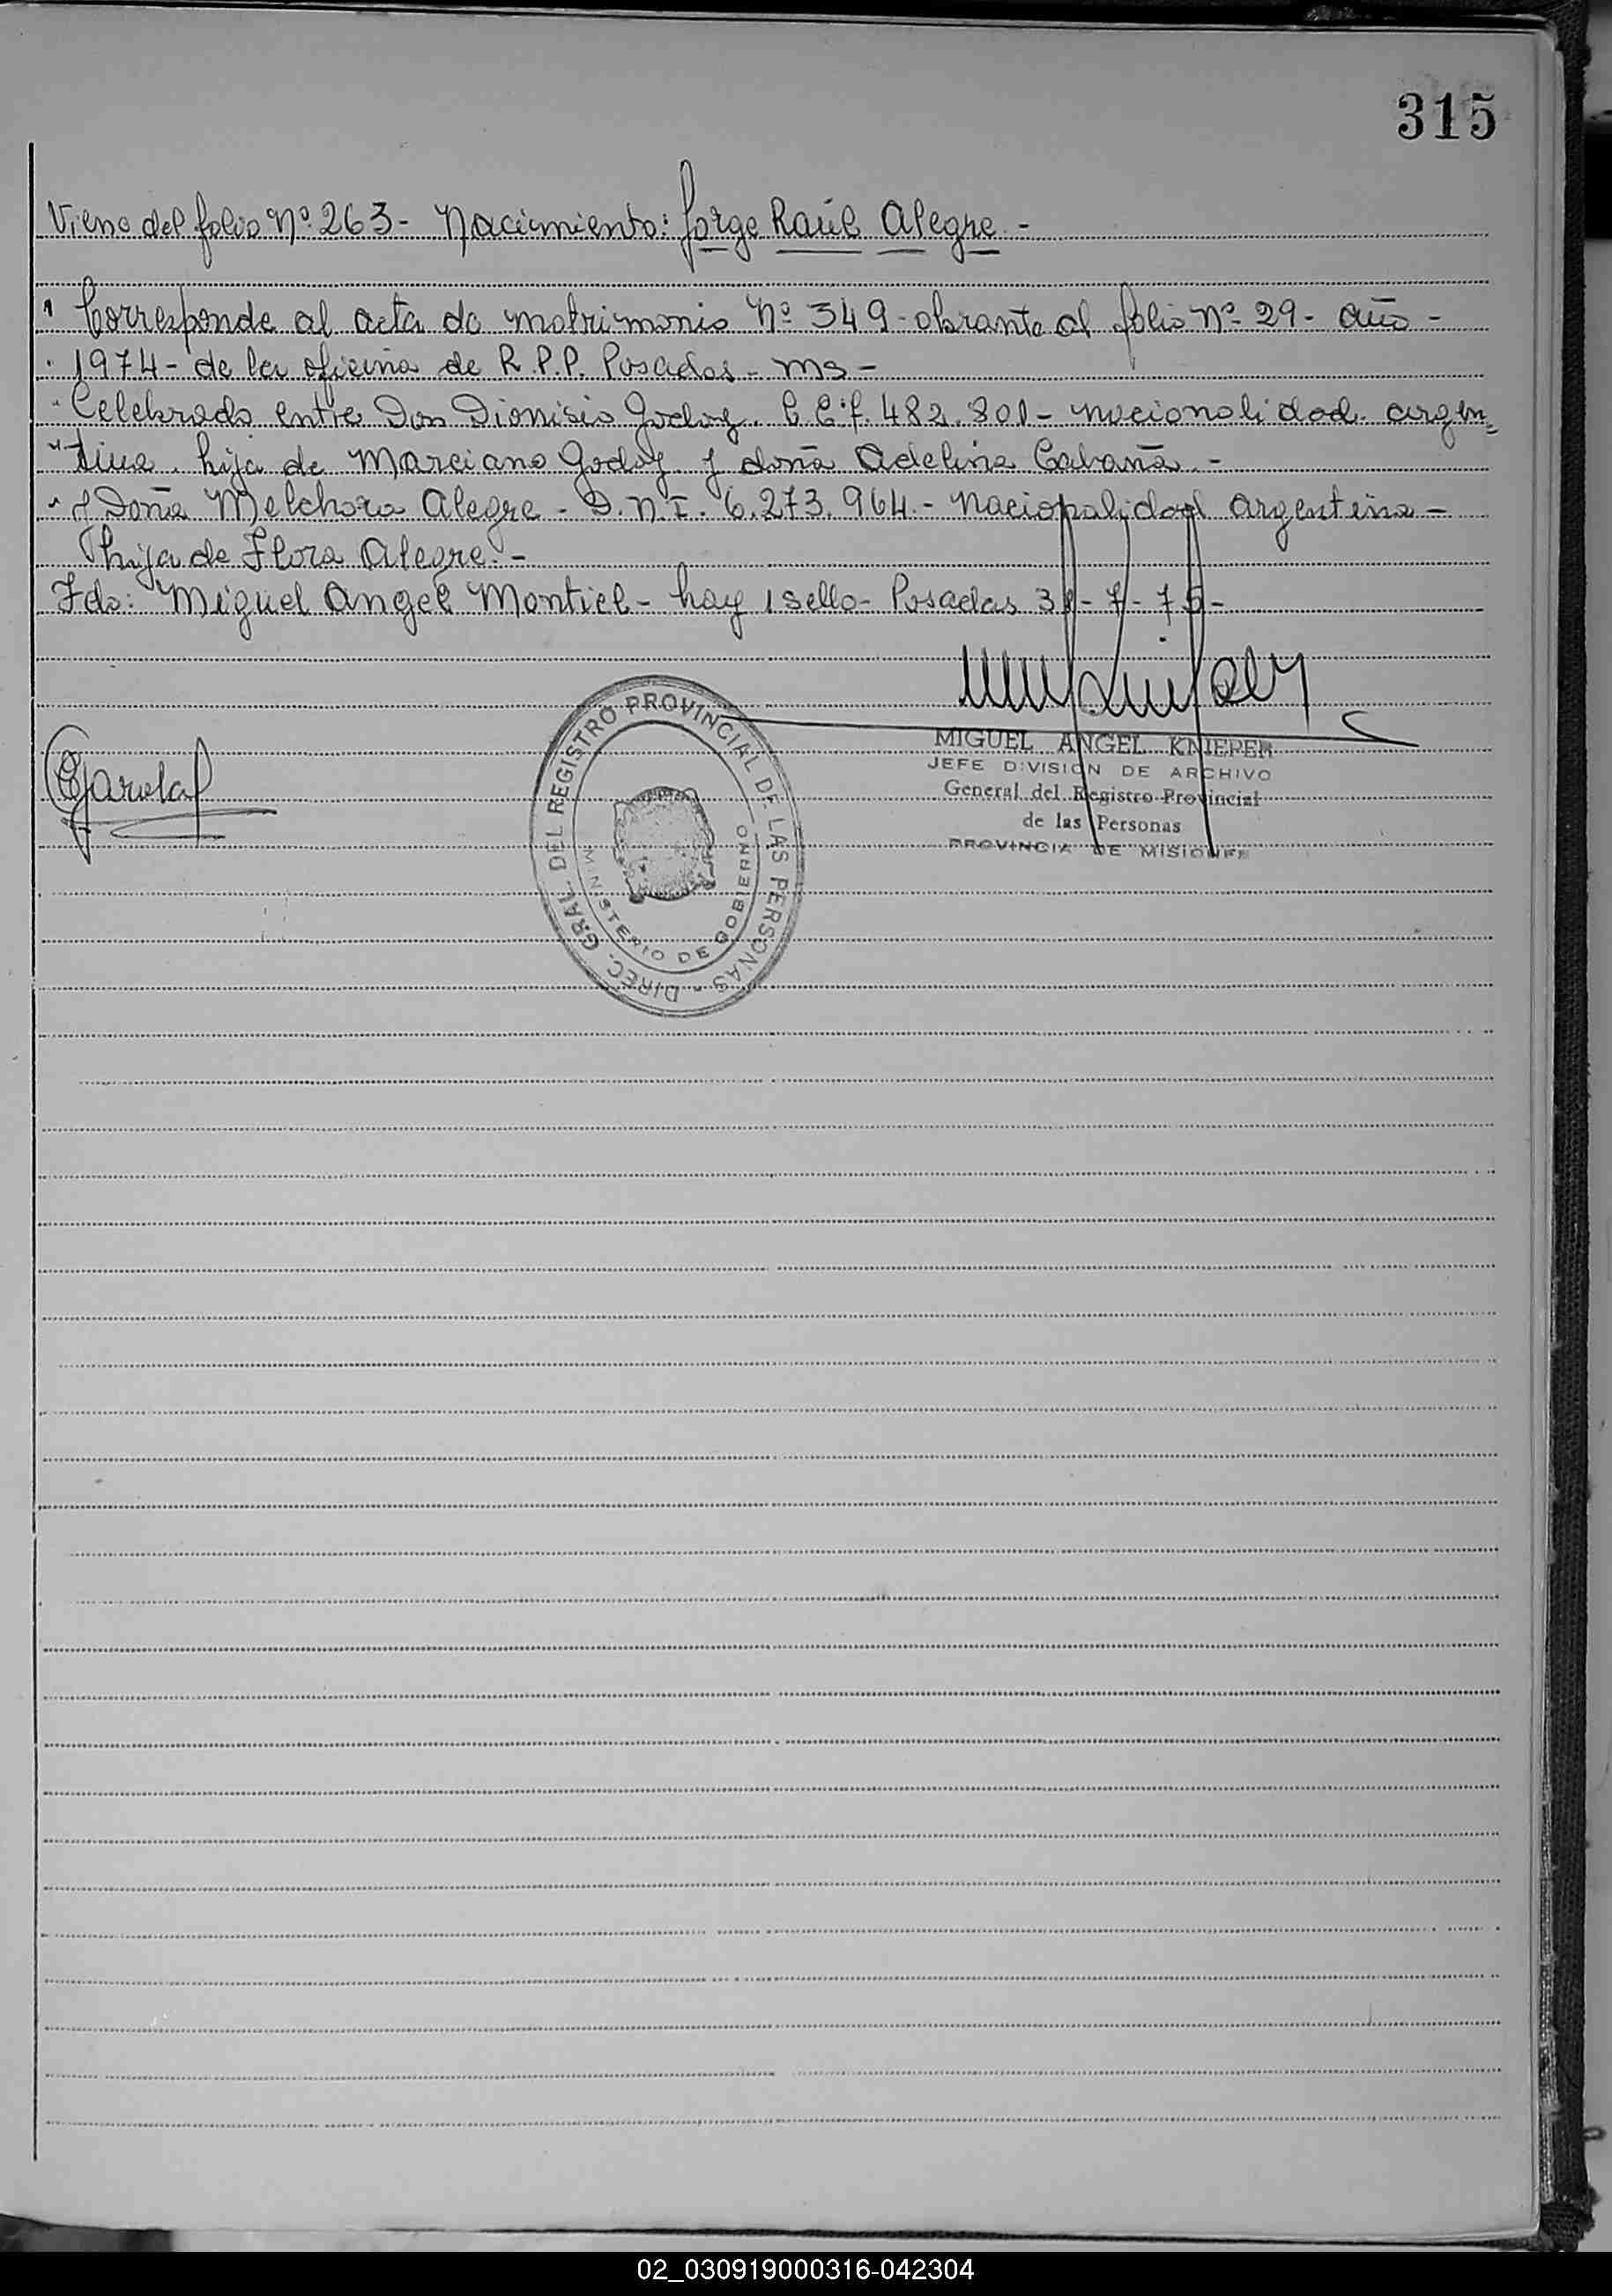 315
Viene del folio Nº 263 - Nacimiento: Jorge Raúl Alegre -
Corresponde al acta de matrimonio Nº 349 - obrante al folio Nº 29 - año -
1974 - de la oficina de R.P.P. Posadas - Ms -
Celebrado entre Don Dionisio Godoy. 482.801 - nacionalidad argen=
tina. hijo de Marciano Godoy y doña Adelina Cabaña. -
y Doña Melchora Alegre - D.N.I. 6.273.964. - Nacionalidad argentina -
hija de Flora Alegre. -
Fdo: Miguel Angel Montiel - hay 1 sello - Posadas 31-7-75 -
DIREC. GRAL. DEL REGISTRO PROVINCIAL DE LAS PERSONAS -
MINISTERIO DE GOBIERNO
MIGUEL ANGEL KNIEPER
JEFE DIVISION DE ARCHIVO
General del Registro Provincial
de las Personas
PROVINCIA DE MISIONES
02_030919000316-042304